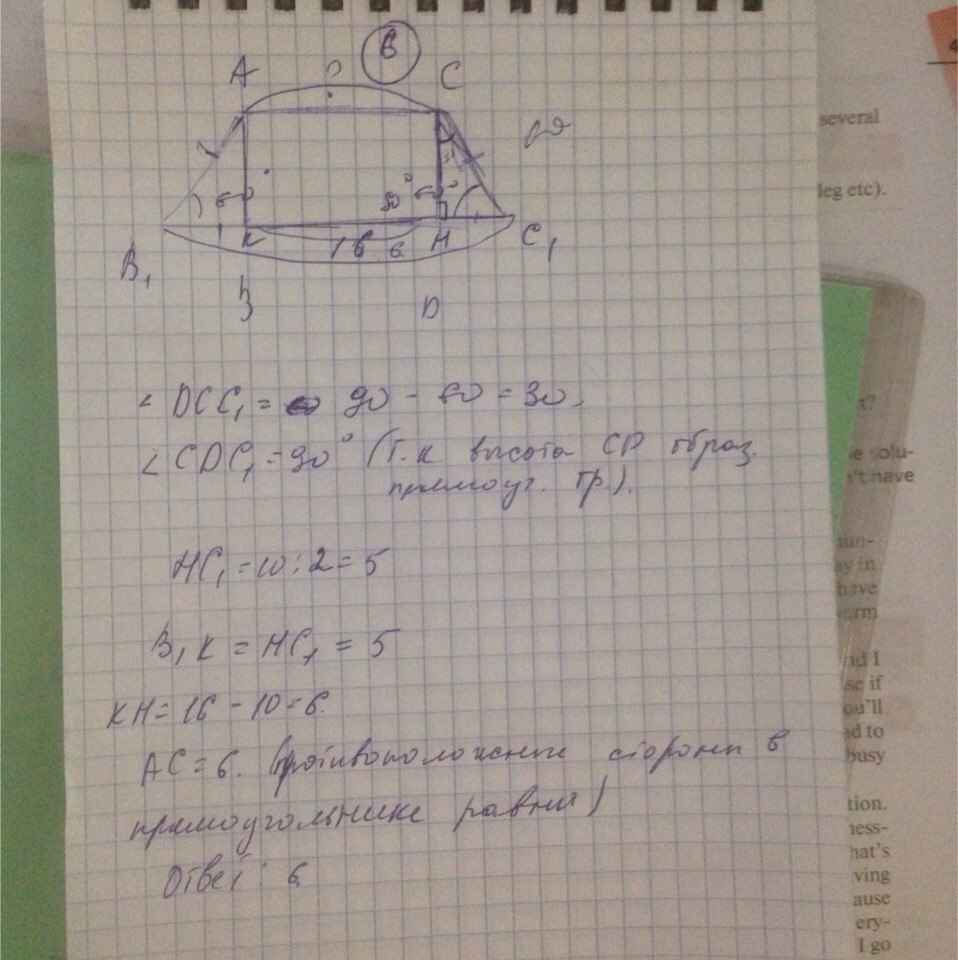 6
A C
90°
30°
60° 60°
K 16 6 H C₁
B₁
D
∠ DCC₁ = 90 - 60 = 30,
∠ CDC₁ = 90° (т.к высота CD образ.
прямоуг. тр.).
HC₁ = 10 : 2 = 5
B₁K = HC₁ = 5
KH = 16 - 10 = 6.
AC = 6. (противоположные стороны в
прямоугольнике равны)
Ответ: 6
4
several
leg etc).
e solu-
n't have
ay in
have
warm
nd I
se if
ou'll
ad to
busy
tion.
ness-
hat's
ving
ause
ery-
I go